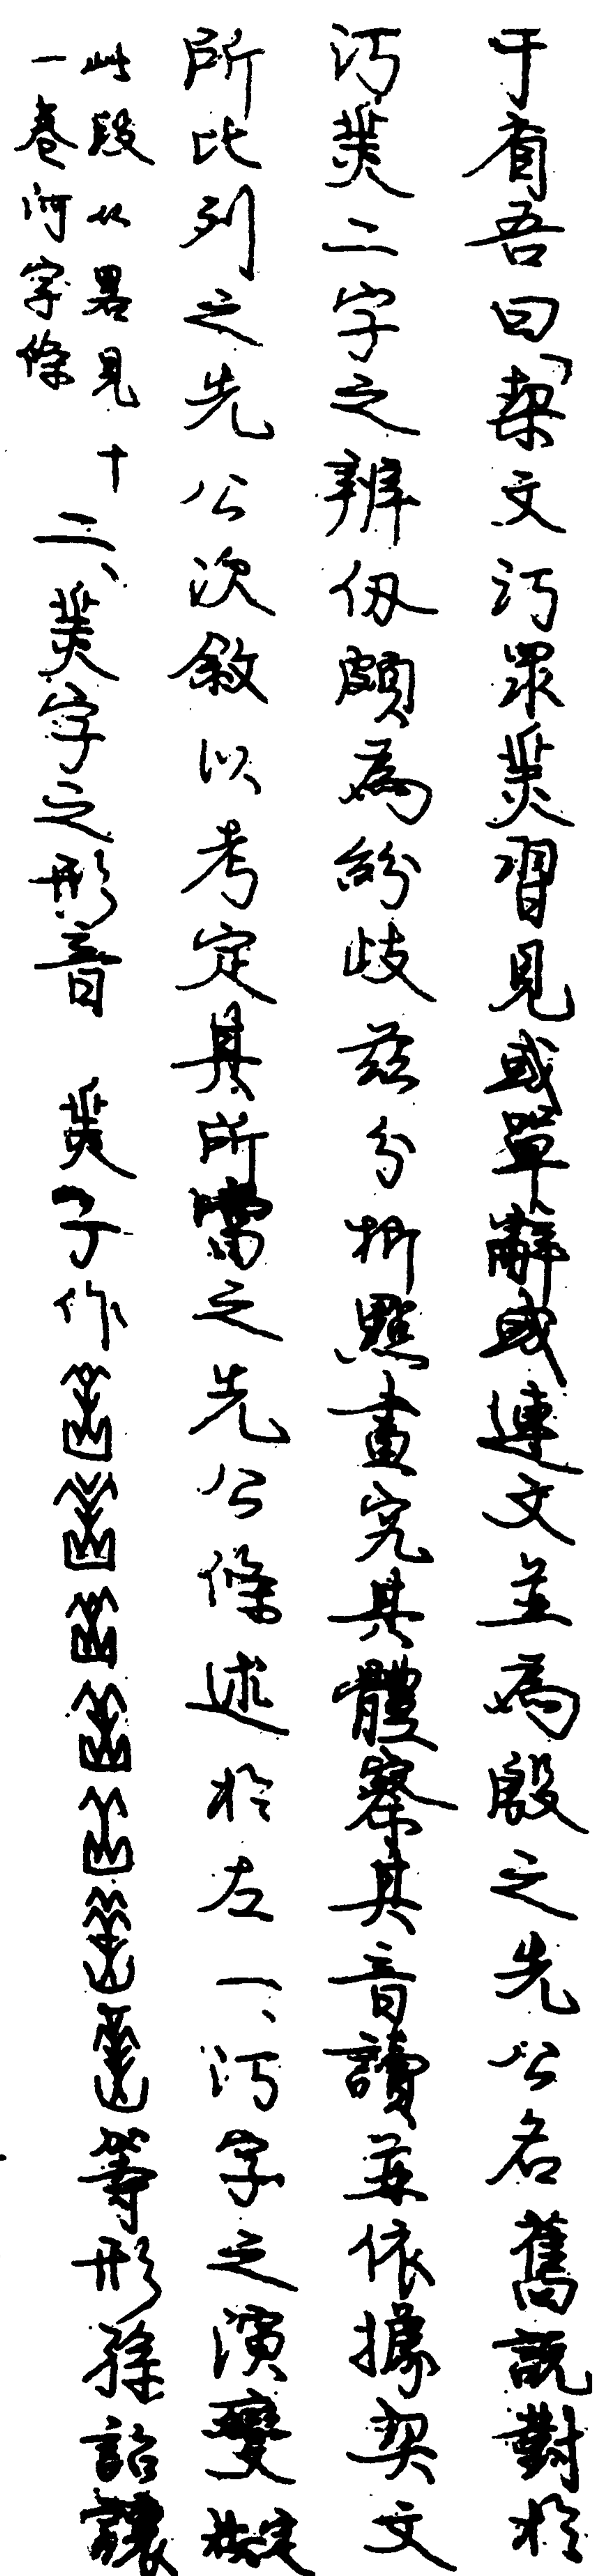 于省吾曰「栔文汅眔習見或單辭或連文並為殷之先公名舊說對於
汅二字之辨仞頗為紛歧茲分析點畫究其體察其音讀並依據契文
所比列之先公次敘以考定其所當之先公條述於左一、汅字之演變
此段从畧見十
一卷河字條
二、字之形音　子作等形孫詒讓